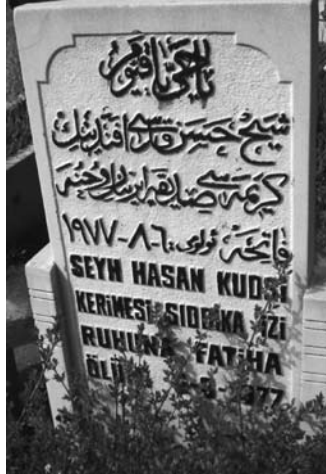 يا حي يا قيوم
شيخ حسن قدسى افندينك
كريمه سى صديقه ايزينك روحنه
فاتحه ئولوى: ٦-٨-١٩٧٧
SEYH HASAN KUDSİ
KERİMESİ SIDDIKA İZİ
RUHUNA FATİHA